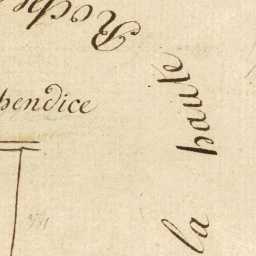 Roche
hendice
la haulte